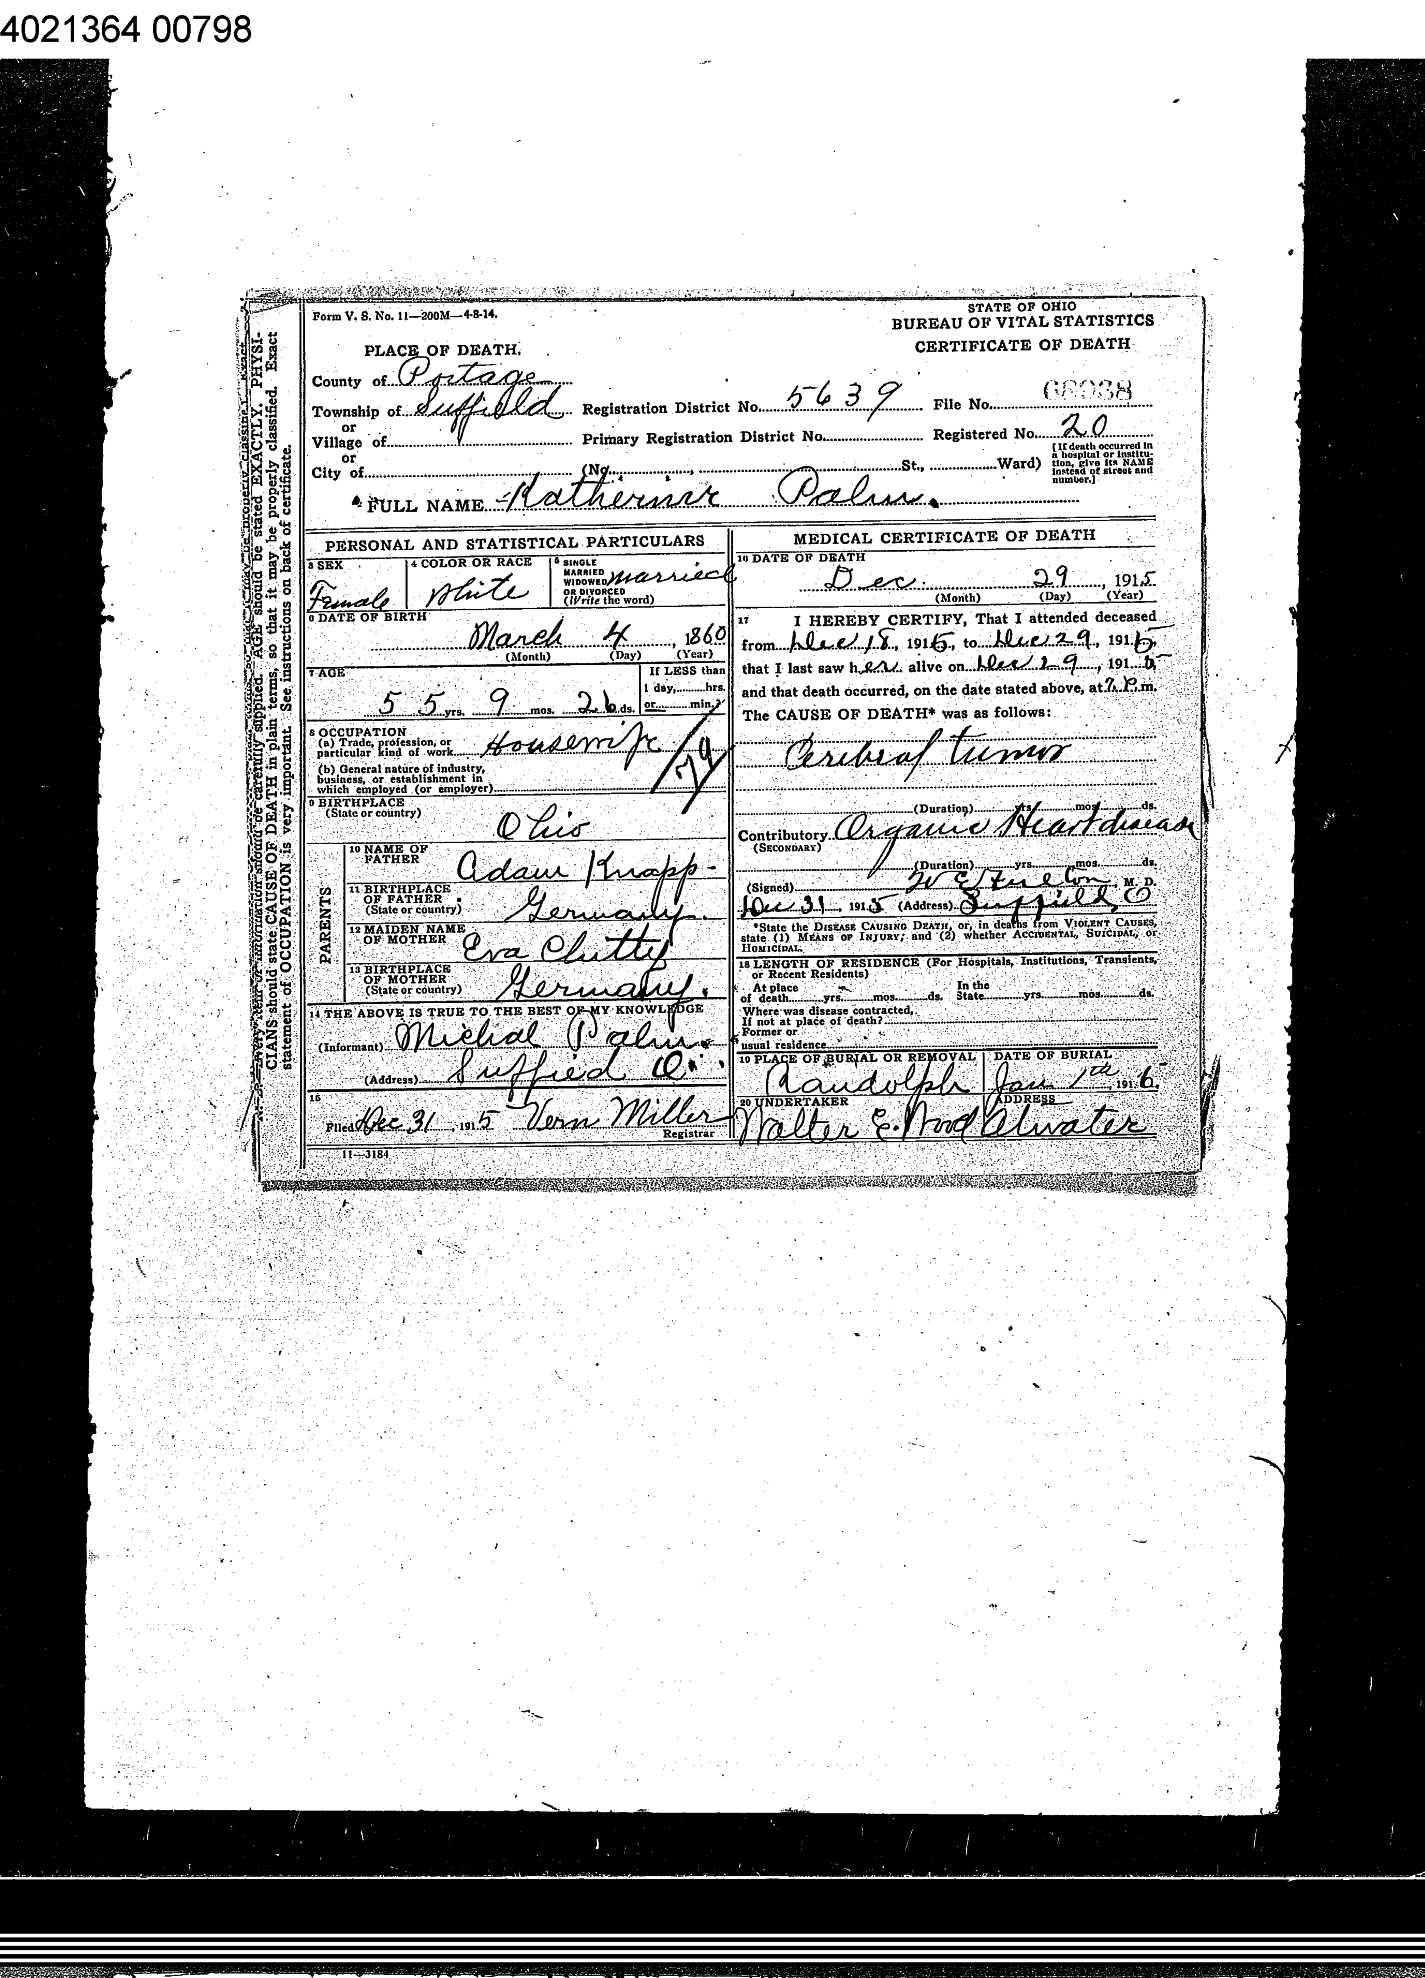 4021364 00798
Form V. S. No. 11—200M—4-8-14.
STATE OF OHIO
BUREAU OF VITAL STATISTICS
CERTIFICATE OF DEATH
PLACE OF DEATH.
County of Portage
Township of Suffield Registration District No. 5639 File No.
or
Village of Primary Registration District No. Registered No. 20
or
City of (No. St., Ward) [If death occurred in a hospital or institution, give its NAME instead of street and number.]
FULL NAME Katherine Palm.
PERSONAL AND STATISTICAL PARTICULARS
3 SEX
Female
4 COLOR OR RACE
White
5 SINGLE
MARRIED
WIDOWED
OR DIVORCED
(Write the word)
married
6 DATE OF BIRTH
March 4, 1860
(Month) (Day) (Year)
7 AGE
55 yrs. 9 mos. 26 ds.
If LESS than
1 day, hrs.
or min.?
8 OCCUPATION
(a) Trade, profession, or
particular kind of work Housewife
(b) General nature of industry,
business, or establishment in
which employed (or employer)
74
9 BIRTHPLACE
(State or country)
Ohio
PARENTS
10 NAME OF
FATHER
Adam Knapp
11 BIRTHPLACE
OF FATHER
(State or country)
Germany.
12 MAIDEN NAME
OF MOTHER
Eva Clutty
13 BIRTHPLACE
OF MOTHER
(State or country)
Germany.
14 THE ABOVE IS TRUE TO THE BEST OF MY KNOWLEDGE
(Informant) Michal Palm.
(Address) Suffied O.
15
Filed Dec 31, 1915 Vern Miller
Registrar
11—3184
MEDICAL CERTIFICATE OF DEATH
16 DATE OF DEATH
Dec. 29, 1915
(Month) (Day) (Year)
17 I HEREBY CERTIFY, That I attended deceased
from Dec 18, 1915, to Dec 29, 1915,
that I last saw her alive on Dec 29, 1915
and that death occurred, on the date stated above, at 7 P.m.
The CAUSE OF DEATH* was as follows:
Cerebral tumor
(Duration) yrs. mos. ds.
Contributory Organic Heart disease
(SECONDARY)
(Duration) yrs. mos. ds.
(Signed) W E Fulton M. D.
Dec 31, 1915 (Address) Suffield O
*State the DISEASE CAUSING DEATH, or, in deaths from VIOLENT CAUSES,
state (1) MEANS OF INJURY; and (2) whether ACCIDENTAL, SUICIDAL, or
HOMICIDAL.
18 LENGTH OF RESIDENCE (For Hospitals, Institutions, Transients,
or Recent Residents)
At place
of death yrs. mos. ds.
In the
State yrs. mos. ds.
Where was disease contracted,
If not at place of death?
Former or
usual residence
19 PLACE OF BURIAL OR REMOVAL
Randolph
DATE OF BURIAL
Jan 1th, 1916
20 UNDERTAKER
Walter E. Wood
ADDRESS
Atwater
CIANS should state CAUSE OF DEATH in plain terms, so that it may be properly classified. Exact
statement of OCCUPATION is very important. See instructions on back of certificate.